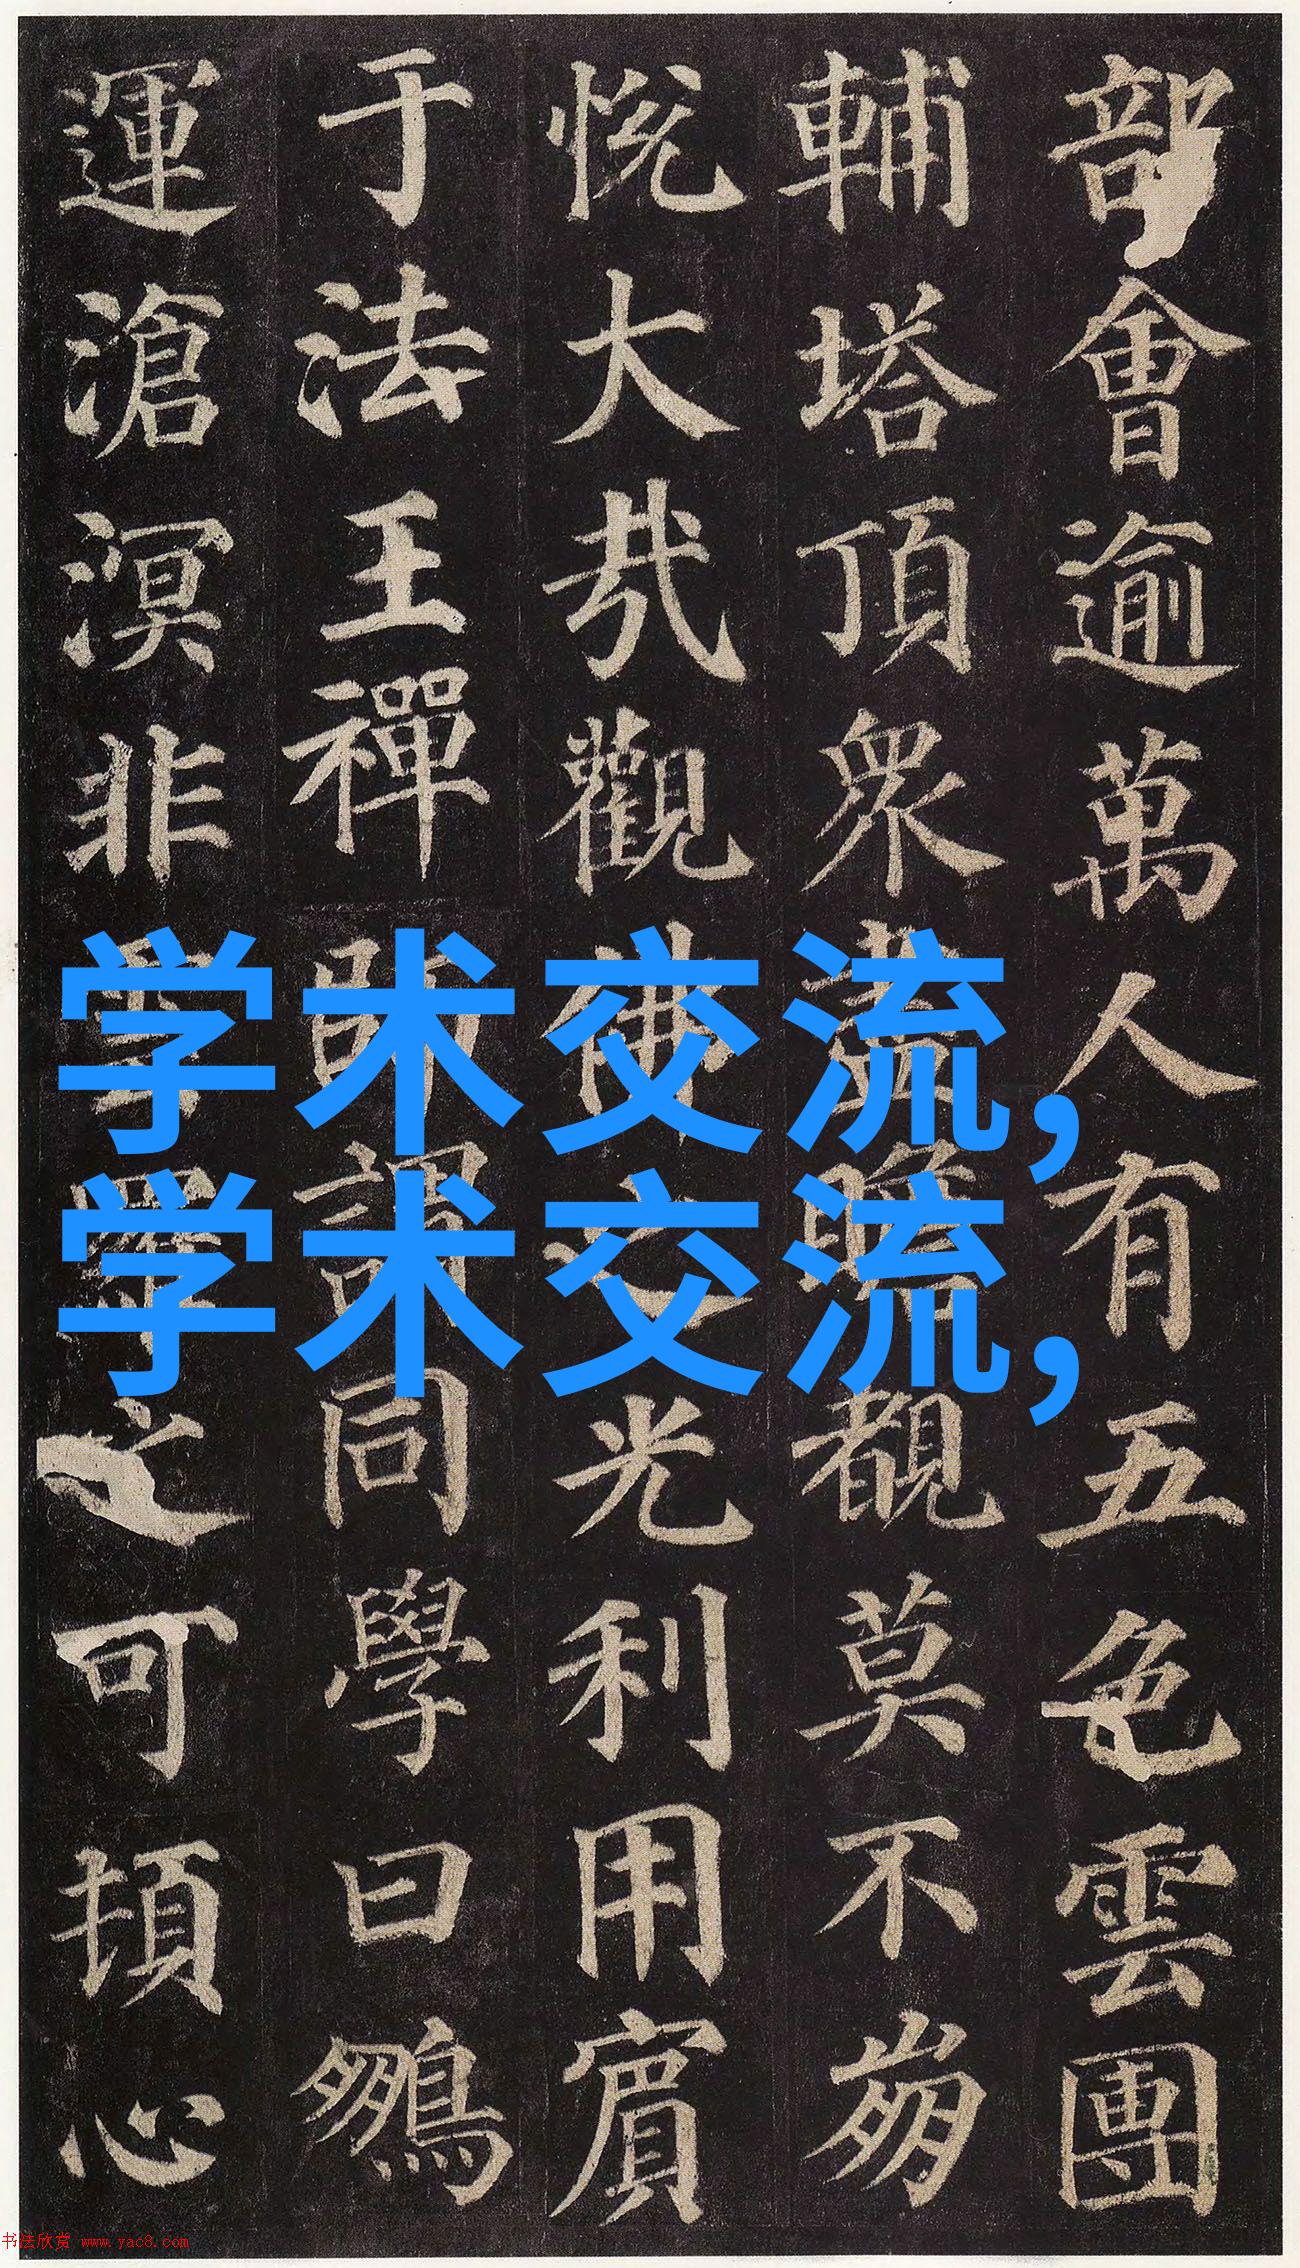 部會逾萬人有五色雲團
輔塔頂眾盡瞻覩莫不崩
悅大哉觀佛之光利用賓
于法王禪師謂同學曰鵬
運滄溟非雲羅之可頓心
学术交流,
学术交流,
书法欣赏 www.yac8.com